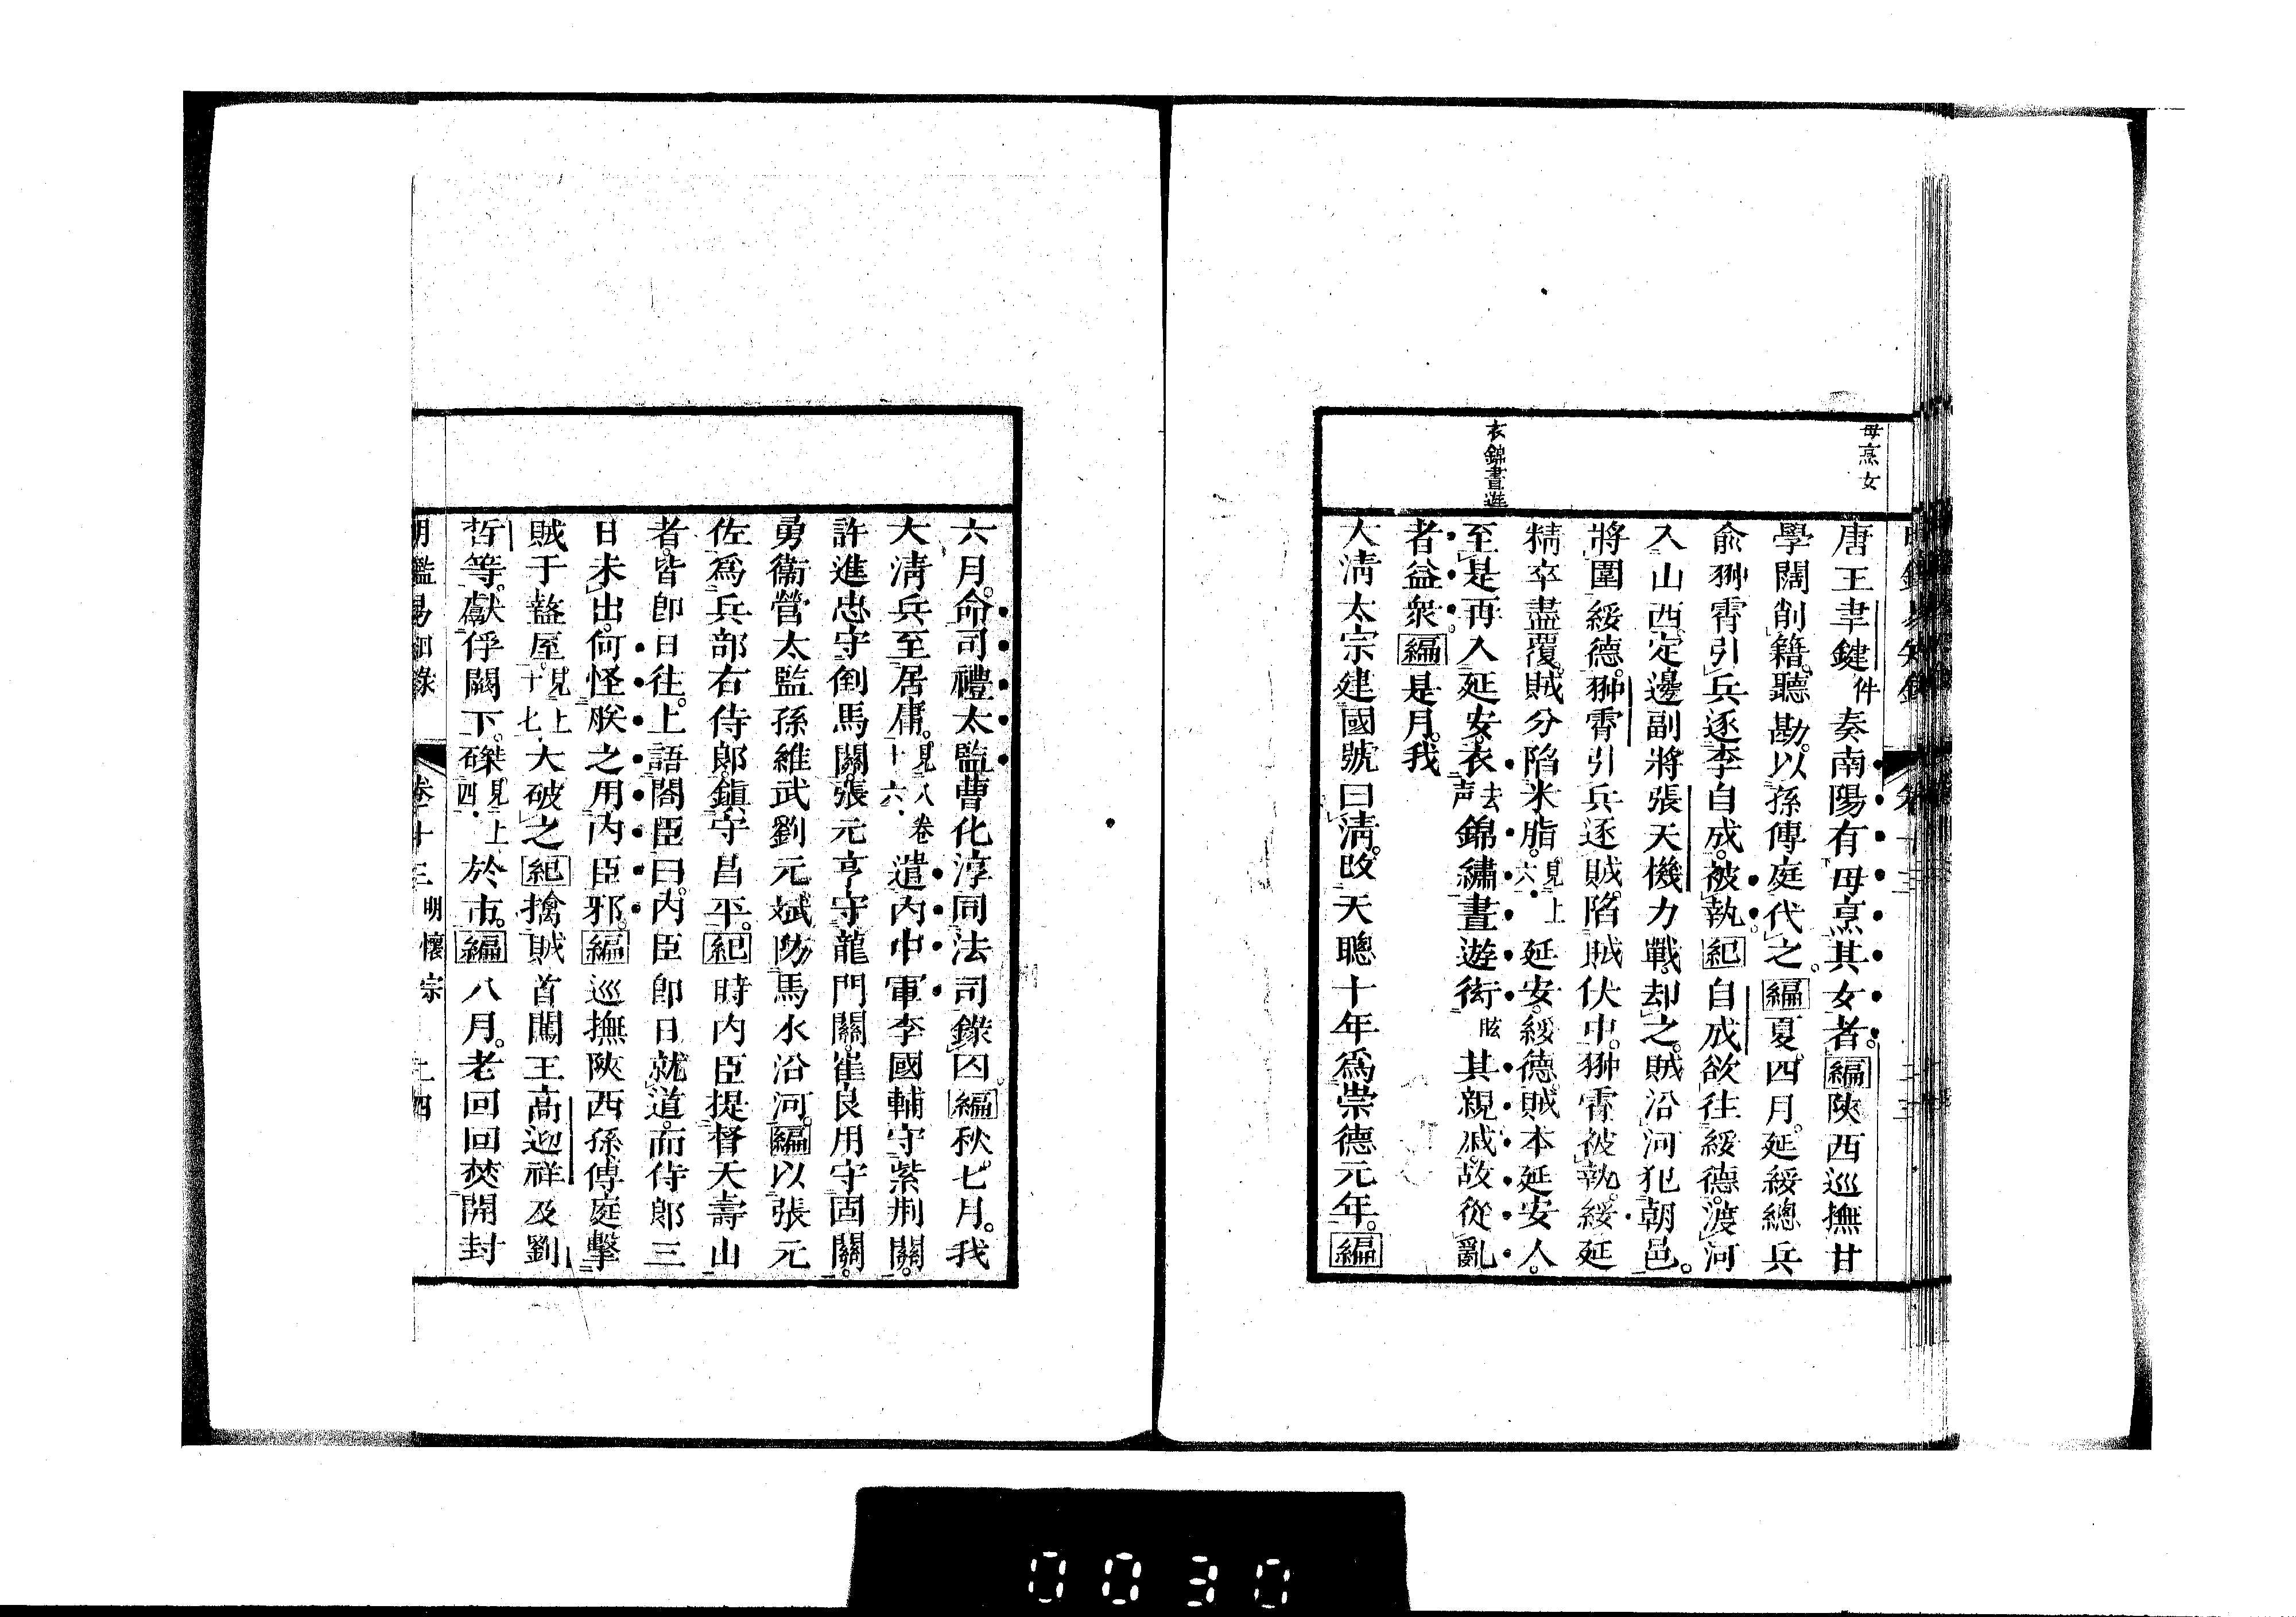 母烹女
唐王聿鍵件奏南陽有母烹其女者編陝西巡撫甘
學闊削籍聽勘以孫傳庭代之編夏四月延綏總兵
俞翀霄引兵逐李自成被執紀自成欲往綏德渡河
入山西定邊副將張天機力戰却之賊沿河犯朝邑
將圍綏德翀霄引兵逐賊陷賊伏中翀霄被執綏延
精卒盡覆賊分陷米脂見上六延安綏德賊本延安人
衣錦晝遊
至是再入延安衣去声錦繡晝遊街眩其親戚故從亂
者益衆編是月我
大淸太宗建國號曰淸改天聰十年爲崇德元年編
六月命司禮太監曹化淳同法司錄囚編秋七月我
大淸兵至居庸見八卷十六遣內中軍李國輔守紫荆關
許進忠守倒馬關張元亨守龍門關崔良用守固關
勇衞營太監孫維武劉元斌防馬水沿河編以張元
佐爲兵部右侍郎鎭守昌平紀時內臣提督天壽山
者皆卽日往上語閣臣曰內臣卽日就道而侍郎三
日未出何怪朕之用內臣邪編巡撫陝西孫傳庭擊
賊于盩厔見上十七大破之紀擒賊首闖王高迎祥及劉
哲等獻俘闕下磔桀見上四於市編八月老回回焚開封
卷十三 明懷宗